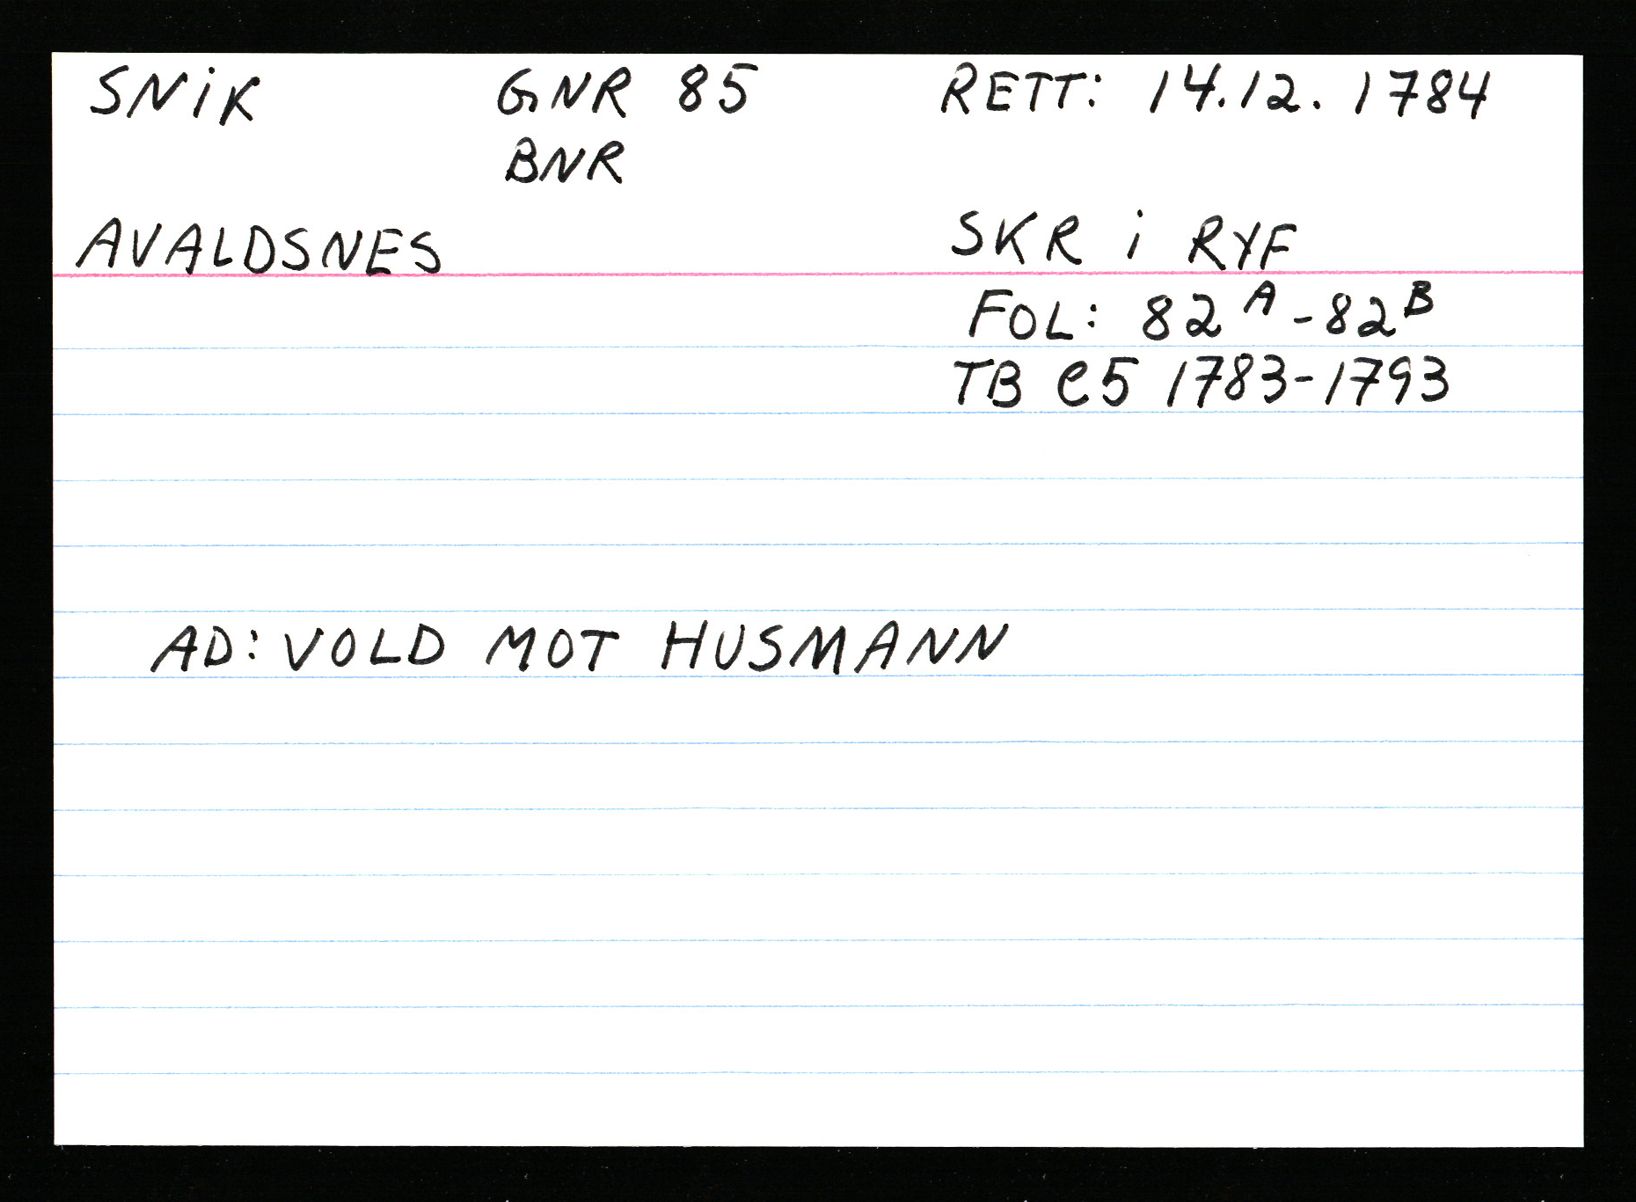 SNiK GNR 85 RETT: 14.12.1784
BNR
AVALDSNES SKR i RYF
FOL: 82A-82B
TB C5 1783-1793
AD: VOLD MOT HUSMANN